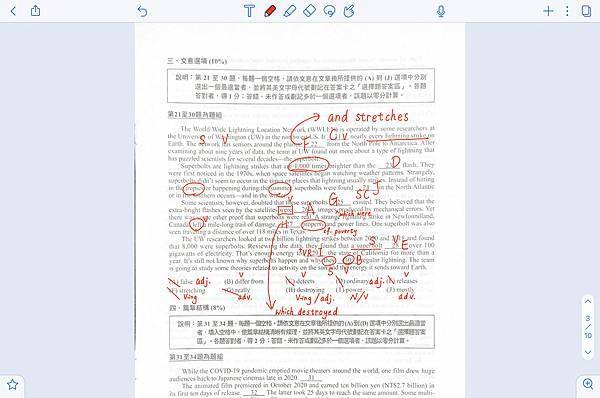 三、文意選項 (10%)
說明：第 21 至 30 題，每題一個空格，請依文意在文章後所提供的 (A) 到 (J) 選項中分別
選出一個最適當者，並將其英文字母代號劃記在答案卡之「選擇題答案區」。各題
答對者，得 1 分；答錯、未作答或劃記多於一個選項者，該題以零分計算。
第21至30題為題組
and stretches
S V F CiV
The World Wide Lightning Location Network (WWLLN) is operated by some researchers at
the University of Washington (UW) in the northwest US. It nearly every lightning strike on
Earth. The network has sensors around the planet 22 from the North Pole to Antarctica. After
examining about nine years of data, the team at UW found out more about a type of lightning that
has puzzled scientists for several decades—the superbolt.
D
Superbolts are lightning strikes that are 1,000 times brighter than the 23 flash. They
were first noticed in the 1970s, when space satellites began watching weather patterns. Strangely,
superbolts didn't seem to occur in the times or places that lightning usually strikes. Instead of hitting
in the tropics or happening during the summer, superbolts were found 24 in the North Atlantic
or in the southern oceans—and in the winter.
A G SC J
Some scientists, however, doubted that these superbolts 25 existed. They believed that the
extra-bright flashes seen by the satellites were 26 images produced by mechanical errors. Yet
which were
there was some other proof that superbolts were real. A strange lightning strike in Newfoundland,
H
Canada left a mile-long trail of damage, 27 property and power lines. One superbolt was also
of poverty
seen traveling a distance of over 118 miles in Texas.
S V E
The UW researchers looked at two billion lightning strikes between 2010 and 2018 and found
that 8,000 were superbolts. Reviewing the data, they found that a superbolt over 100
gigawatts of electricity. That's enough energy the state of California for more than a
year. It's still not known why superbolts happen and why they so B regular lightning. The team
S V
is going to study some theories related to activity on the sun and energy it sends toward Earth.
(A) false adj. (B) differ from (C) detects (D) ordinary adj. (E) releases
(F) stretching (G) really (H) destroying (I) power (J) mostly
Ving adv. Ving/adj. N/V adv.
which destroyed
四、篇章結構 (8%)
說明：第 31 至 34 題，每題一個空格，請依文意在文章後所提供的 (A) 到 (D) 選項中分別選出最適當
者，填入空格中，使篇章結構清晰有條理，並將其英文字母代號劃記在答案卡之「選擇題答案
區」。各題答對者，得 2 分；答錯、未作答或劃記多於一個選項者，該題以零分計算。
第31至34題為題組
While the COVID-19 pandemic emptied movie theaters around the world, one film drew huge
audiences back to Japanese cinemas late in 2020. 31
The animated film premiered in October 2020 and earned ten billion yen (NT$2.7 billion) in
its first ten days of release. 32 The latter took 25 days to reach the same amount. Some multi-
3
/
10